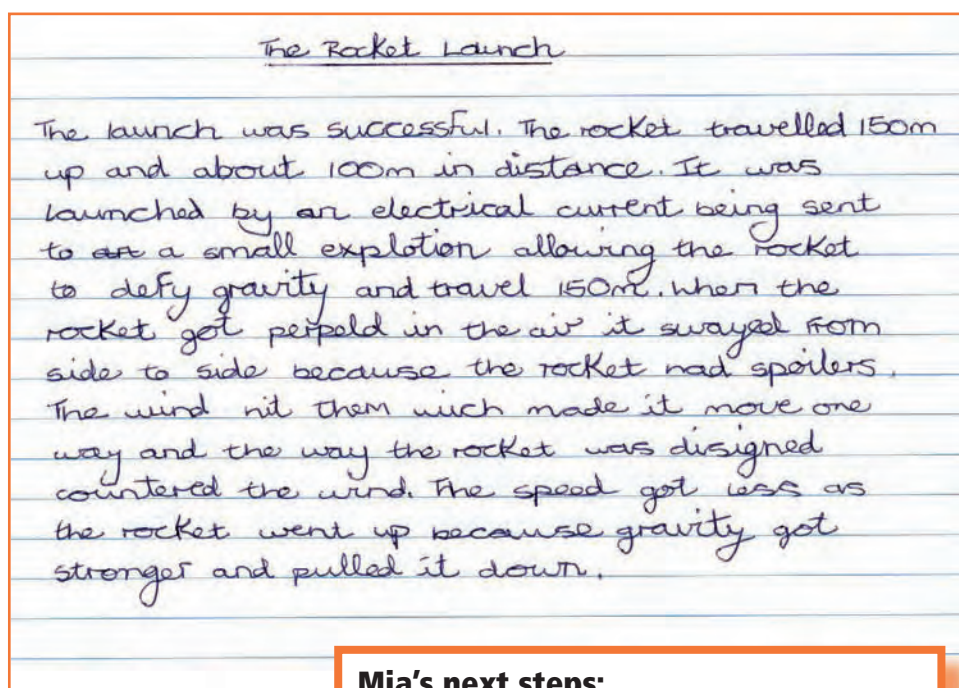 The Rocket Launch
The launch was successful. The rocket travelled 150m
up and about 100m in distance. It was
launched by an electrical current being sent
to a small explotion allowing the rocket
to defy gravity and travel 150m. when the
rocket got perpeld in the air it swayed from
side to side because the rocket had spoilers.
The wind hit them wich made it move one
way and the way the rocket was disigned
countered the wind. The speed got less as
the rocket went up because gravity got
stronger and pulled it down.
Mia's next steps: